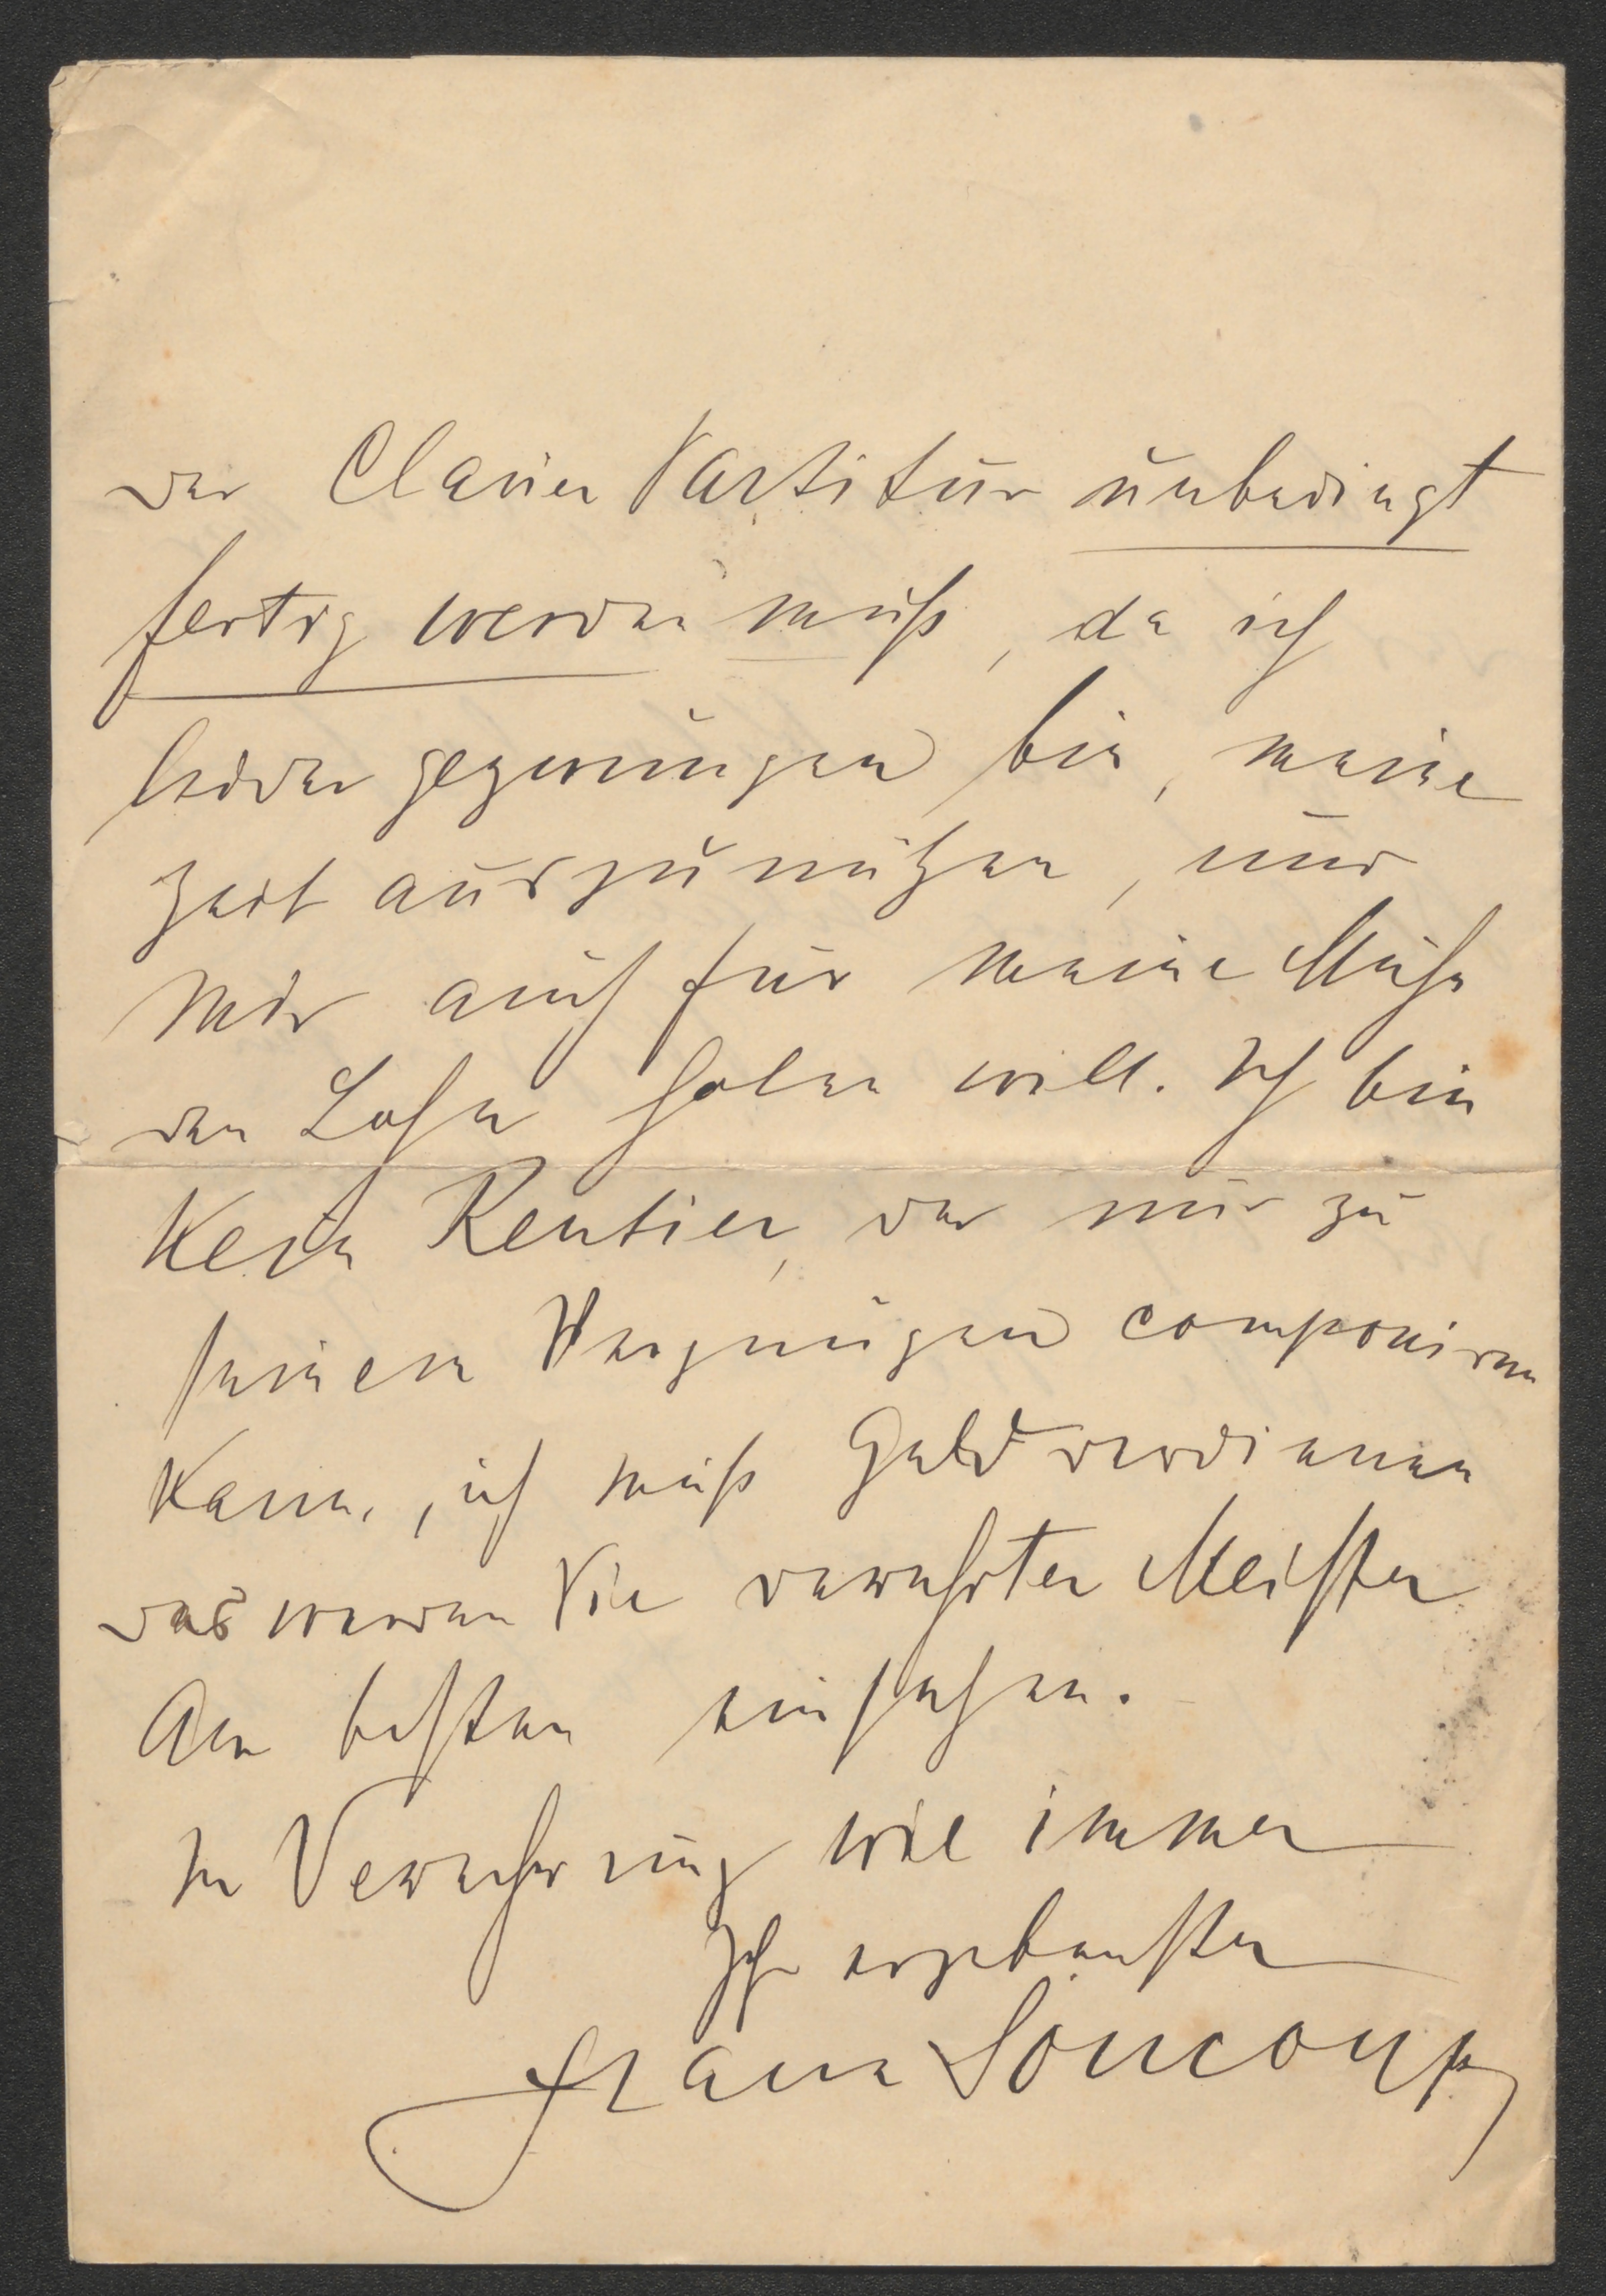 der Clavier Partitur unbedingt
fertig werden muß, da ich
leider gezwungen bin, meine
Zeit auszunützen, und
mir auch für meine Mühe
den Lohn holen will. Ich bin
kein Rentier, der nur zu
seinem Vergnügen componiren
kann, ich muß Geld verdienen
das werden Sie verehrter Meister
Am besten einsehen.
In Verehrung wie immer
Ihr ergebenster
Franz Soucoup